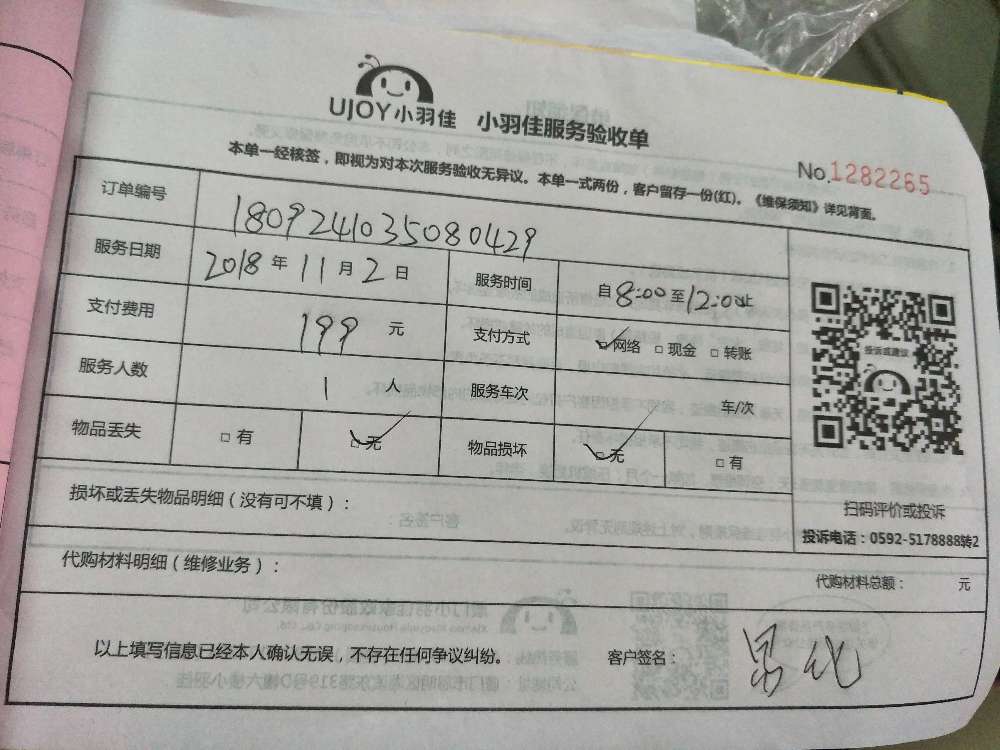 UJOY小羽佳 小羽佳服务验收单
No.1282265
本单一经核签，即视为对本次服务验收无异议。本单一式两份，客户留存一份(红)。《维保须知》详见背面。
订单编号 1809241035080429
服务日期 2018年11月2日 服务时间 自8:00至12:00止
支付费用 199元 支付方式 网络 现金 转账
服务人数 1人 服务车次 车/次
物品丢失 有 无 物品损坏 无 有
投诉或建议
扫码评价或投诉
投诉电话：0592-5178888转2
损坏或丢失物品明细（没有可不填）：
代购材料明细（维修业务）：
代购材料总额： 元
以上填写信息已经本人确认无误，不存在任何争议纠纷。 客户签名：